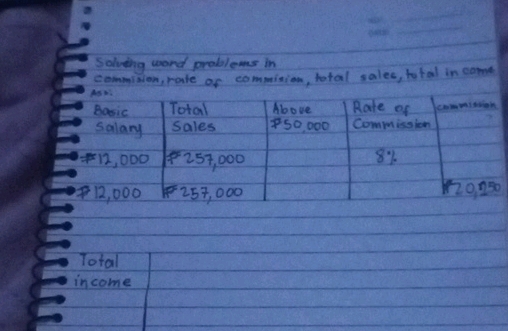 Solving word problems in
commision, rate of commision, total sales, total in come
Ask:
Basic Total Above Rate of commission
Salary Sales ₱50,000 Commission
₱12,000 ₱257,000 8%
₱12,000 ₱257,000 ₱20,750
Total
income